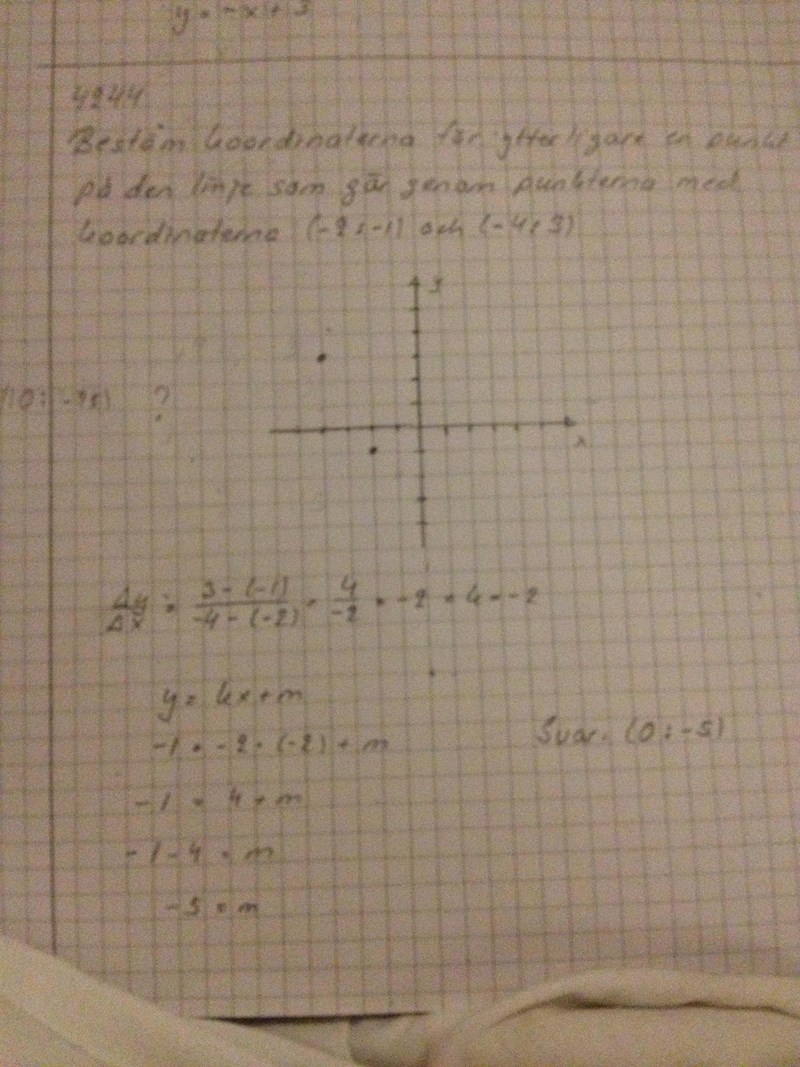 y = -x + 3
4244
Bestäm koordinaterna för ytterligare en punkt
på den linje som går genom punkterna med
koordinaterna (-2 ; -1) och (-4 ; 3)
y
?
x
Δy/Δx = 3-(-1)/-4-(-2) = 4/-2 = -2 = k = -2
y = kx + m
-1 = -2 · (-2) + m
Svar: (0 ; -5)
-1 = 4 + m
-1-4 = m
-5 = m